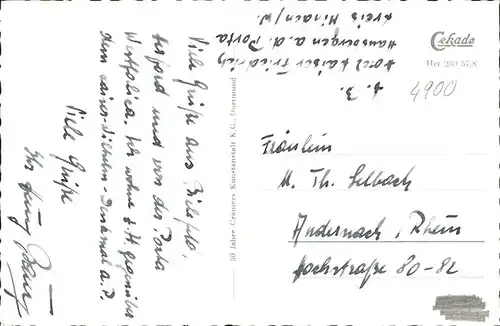 z. Z.
Hotel Kaiser Friedrich
Hausbergen a. d. Porta
Kreis Minden/W.
Cekade
Her 230 57/8
4900
Viele Grüße aus Bielefeld,
Herford und von der Porta
Westfalica. Ich wohne z. Zt. gegenüber
dem Kaiser-Wilhelm-Denkmal a. P.
Viele Grüße
Ihr
50 Jahre Cramers Kunstanstalt K.G., Dortmund
Fräulein
M. Th. Selbach
Andernach, Rhein
Hochstraße 80-82